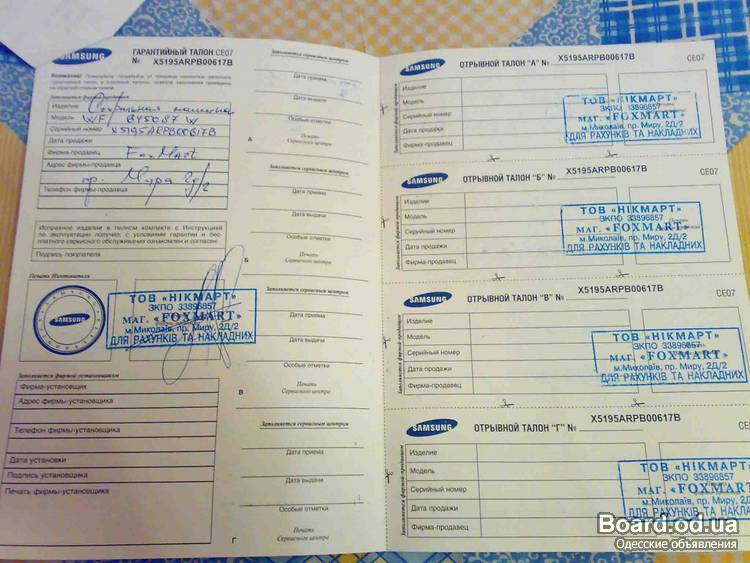 SAMSUNG
ГАРАНТИЙНЫЙ ТАЛОН CE07
№ X5195ARPB00617B
Заполняется фирмой-продавцом
Изделие Стиральная машина
Модель WF
Серийный номер X5195ARPB00617B
Дата продажи
Фирма-продавец FoxMart
Адрес фирмы-продавца
Телефон фирмы-продавца
Исправное изделие в полном комплекте с Инструкцией
по эксплуатации получил; с условиями гарантии и бес-
платного сервисного обслуживания ознакомлен и согласен:
Подпись покупателя
Печать Изготовителя
SAMSUNG
ТОВ «НІКМАРТ»
ЗКПО 33896857
МАГ. «FOXMART»
м.Миколаїв, пр. Миру, 2Д/2
ДЛЯ РАХУНКІВ ТА НАКЛАДНИХ
Заполняется фирмой-установщиком
Фирма-установщик
Адрес фирмы-установщика
Телефон фирмы-установщика
Дата установки
Подпись установщика
Печать фирмы-установщика
Заполняется сервисным центром
Дата приема
Дата выдачи
Особые отметки
Печать
Сервисного центра
А
Заполняется сервисным центром
Дата приема
Дата выдачи
Особые отметки
Печать
Сервисного центра
Б
Заполняется сервисным центром
Дата приема
Дата выдачи
Особые отметки
Печать
Сервисного центра
В
Заполняется сервисным центром
Дата приема
Дата выдачи
Особые отметки
Печать
Сервисного центра
Г
SAMSUNG
ОТРЫВНОЙ ТАЛОН "А" № X5195ARPB00617B CE07
Заполняется фирмой-продавцом
Изделие
Модель
Серийный номер
Дата продажи
Фирма-продавец
ТОВ «НІКМАРТ»
ЗКПО 33896857
МАГ. «FOXMART»
м.Миколаїв, пр. Миру, 2Д/2
ДЛЯ РАХУНКІВ ТА НАКЛАДНИХ
SAMSUNG
ОТРЫВНОЙ ТАЛОН "Б" № X5195ARPB00617B CE07
Заполняется фирмой-продавцом
Изделие
Модель
Серийный номер
Дата продажи
Фирма-продавец
ТОВ «НІКМАРТ»
ЗКПО 33896857
МАГ. «FOXMART»
м.Миколаїв, пр. Миру, 2Д/2
ДЛЯ РАХУНКІВ ТА НАКЛАДНИХ
SAMSUNG
ОТРЫВНОЙ ТАЛОН "В" № X5195ARPB00617B CE07
Заполняется фирмой-продавцом
Изделие
Модель
Серийный номер
Дата продажи
Фирма-продавец
ТОВ «НІКМАРТ»
ЗКПО 33896857
МАГ. «FOXMART»
м.Миколаїв, пр. Миру, 2Д/2
ДЛЯ РАХУНКІВ ТА НАКЛАДНИХ
SAMSUNG
ОТРЫВНОЙ ТАЛОН "Г" № X5195ARPB00617B
Заполняется фирмой-продавцом
Изделие
Модель
Серийный номер
Дата продажи
Фирма-продавец
ТОВ «НІКМАРТ»
ЗКПО 33896857
МАГ. «FOXMART»
м.Миколаїв, пр. Миру, 2Д/2
ДЛЯ РАХУНКІВ ТА НАКЛАДНИХ
Board.od.ua
Одесские объявления